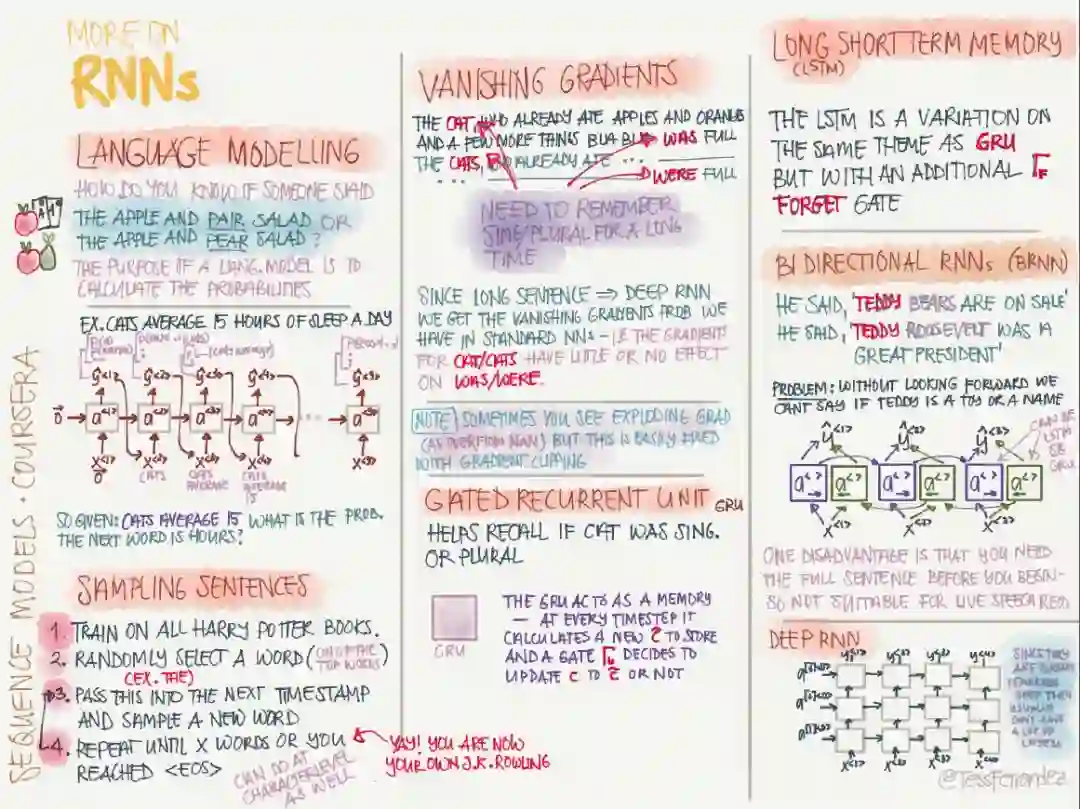 MORE ON
RNNs
LANGUAGE MODELLING
HOW DO YOU KNOW IF SOMEONE SAID
THE APPLE AND PAIR SALAD OR
THE APPLE AND PEAR SALAD?
THE PURPOSE IF A LANG.MODEL IS TO
CALCULATE THE PROBABILITIES
EX. CATS AVERAGE 15 HOURS OF SLEEP A DAY
ŷ<1> ŷ<2> ŷ<3> ŷ<4>
a<1> a<2> a<3>
x<1> x<2> x<3>
CATS
CATS AVERAGE
CATS AVERAGE 15
SO GIVEN: CATS AVERAGE 15 WHAT IS THE PROB.
THE NEXT WORD IS HOURS?
SAMPLING SENTENCES
1. TRAIN ON ALL HARRY POTTER BOOKS.
2. RANDOMLY SELECT A WORD (ONE OF THE TOP WORDS)
(EX. THE)
3. PASS THIS INTO THE NEXT TIMESTAMP
AND SAMPLE A NEW WORD
4. REPEAT UNTIL X WORDS OR YOU
REACHED <EOS>
CAN DO AT
CHARACTERLEVEL
AS WELL
YAY! YOU ARE NOW
YOUR OWN J.K. ROWLING
SEQUENCE MODELS · COURSERA
VANISHING GRADIENTS
THE CAT, WHO ALREADY ATE APPLES AND ORANGES
AND A FEW MORE THINGS BLA BLA WAS FULL
THE CATS, ALREADY ATE ...
... WERE FULL
NEED TO REMEMBER
SING/PLURAL FOR A LONG
TIME
SINCE LONG SENTENCE ⇒ DEEP RNN
WE GET THE VANISHING GRADIENTS PROB WE
HAVE IN STANDARD NNs – IE THE GRADIENTS
FOR CAT/CATS HAVE LITTLE OR NO EFFECT
ON WAS/WERE.
NOTE SOMETIMES YOU SEE EXPLODING GRAD
(AS OVERFLOW NAN) BUT THIS IS EASILY FIXED
WITH GRADIENT CLIPPING
GATED RECURRENT UNIT GRU
HELPS RECALL IF CAT WAS SING.
OR PLURAL
GRU
THE GRU ACTS AS A MEMORY
– AT EVERY TIMESTEP IT
CALCULATES A NEW c̃ TO STORE
AND A GATE Γu DECIDES TO
UPDATE C TO c̃ OR NOT
LONG SHORT TERM MEMORY
(LSTM)
THE LSTM IS A VARIATION ON
THE SAME THEME AS GRU
BUT WITH AN ADDITIONAL Γf
FORGET GATE
BI DIRECTIONAL RNNs (BRNN)
HE SAID, 'TEDDY BEARS ARE ON SALE'
HE SAID, 'TEDDY ROOSEVELT WAS A
GREAT PRESIDENT'
PROBLEM: WITHOUT LOOKING FORWARD WE
CANT SAY IF TEDDY IS A TOY OR A NAME
ŷ<1> ŷ<2> ŷ<3>
CAN BE
LSTM
OR
GRU
a<1> a<1> a<2> a<2> a<3> a<3>
x<1> x<2> x<3>
ONE DISADVANTAGE IS THAT YOU NEED
THE FULL SENTENCE BEFORE YOU BEGIN–
SO NOT SUITABLE FOR LIVE SPEECH REC
DEEP RNN
y<1> y<2> y<3> y<4>
x<1> x<2> x<3> x<4>
@TessFerrandez